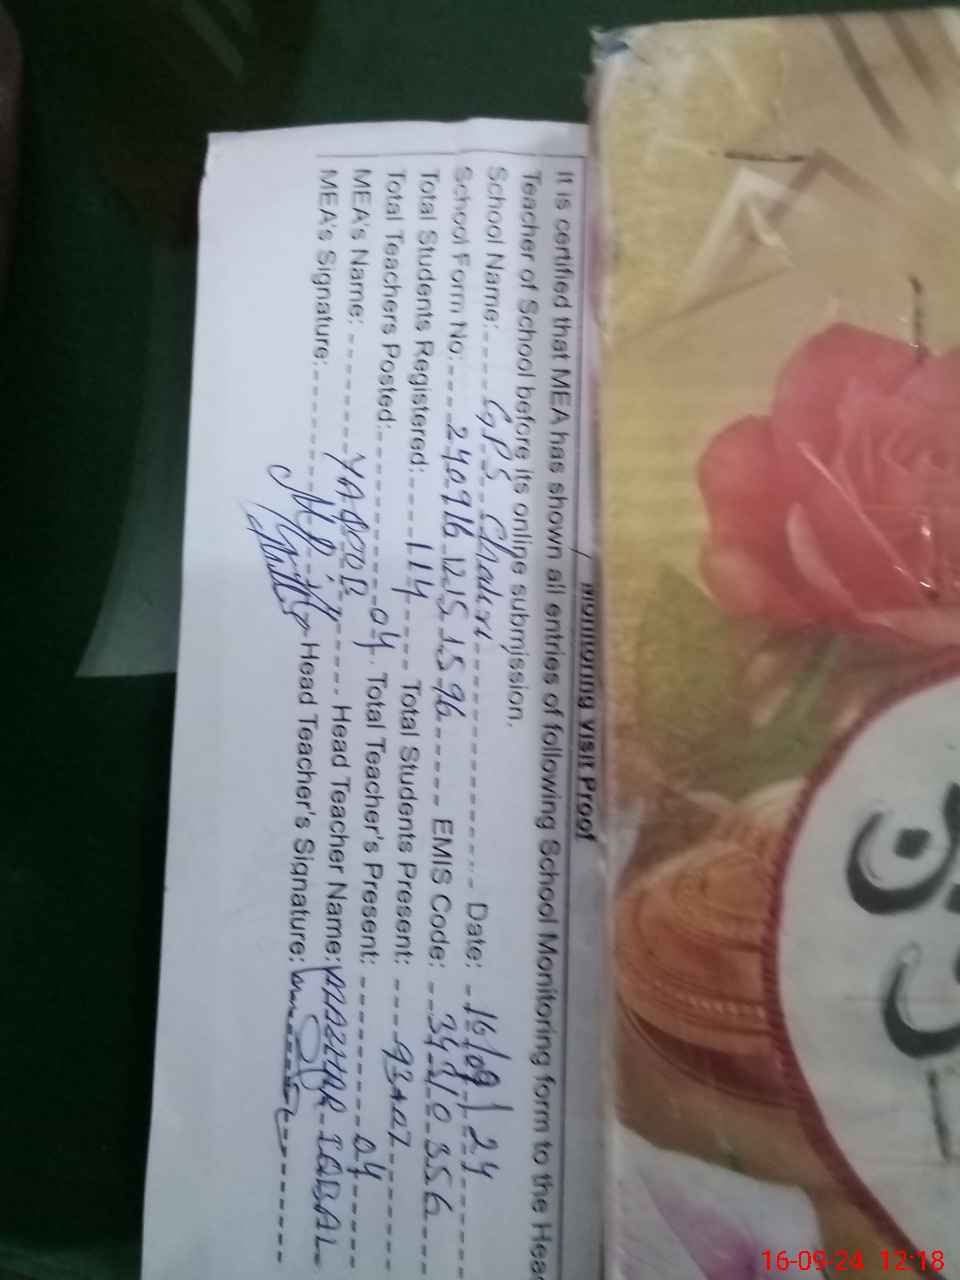 Monitoring Visit Proof
It is certified that MEA has shown all entries of following School Monitoring form to the Head
Teacher of School before its online submission.
School Name: GPS Date: 16/09/24
School Form No: 24091612151596 EMIS Code:
Total Students Registered: 114 Total Students Present: 93+07
Total Teachers Posted: 04. Total Teacher's Present: 04
MEA's Name: YASOOB Head Teacher Name: MAZHAR IQBAL
MEA's Signature: Head Teacher's Signature:
16-09-24 12:18